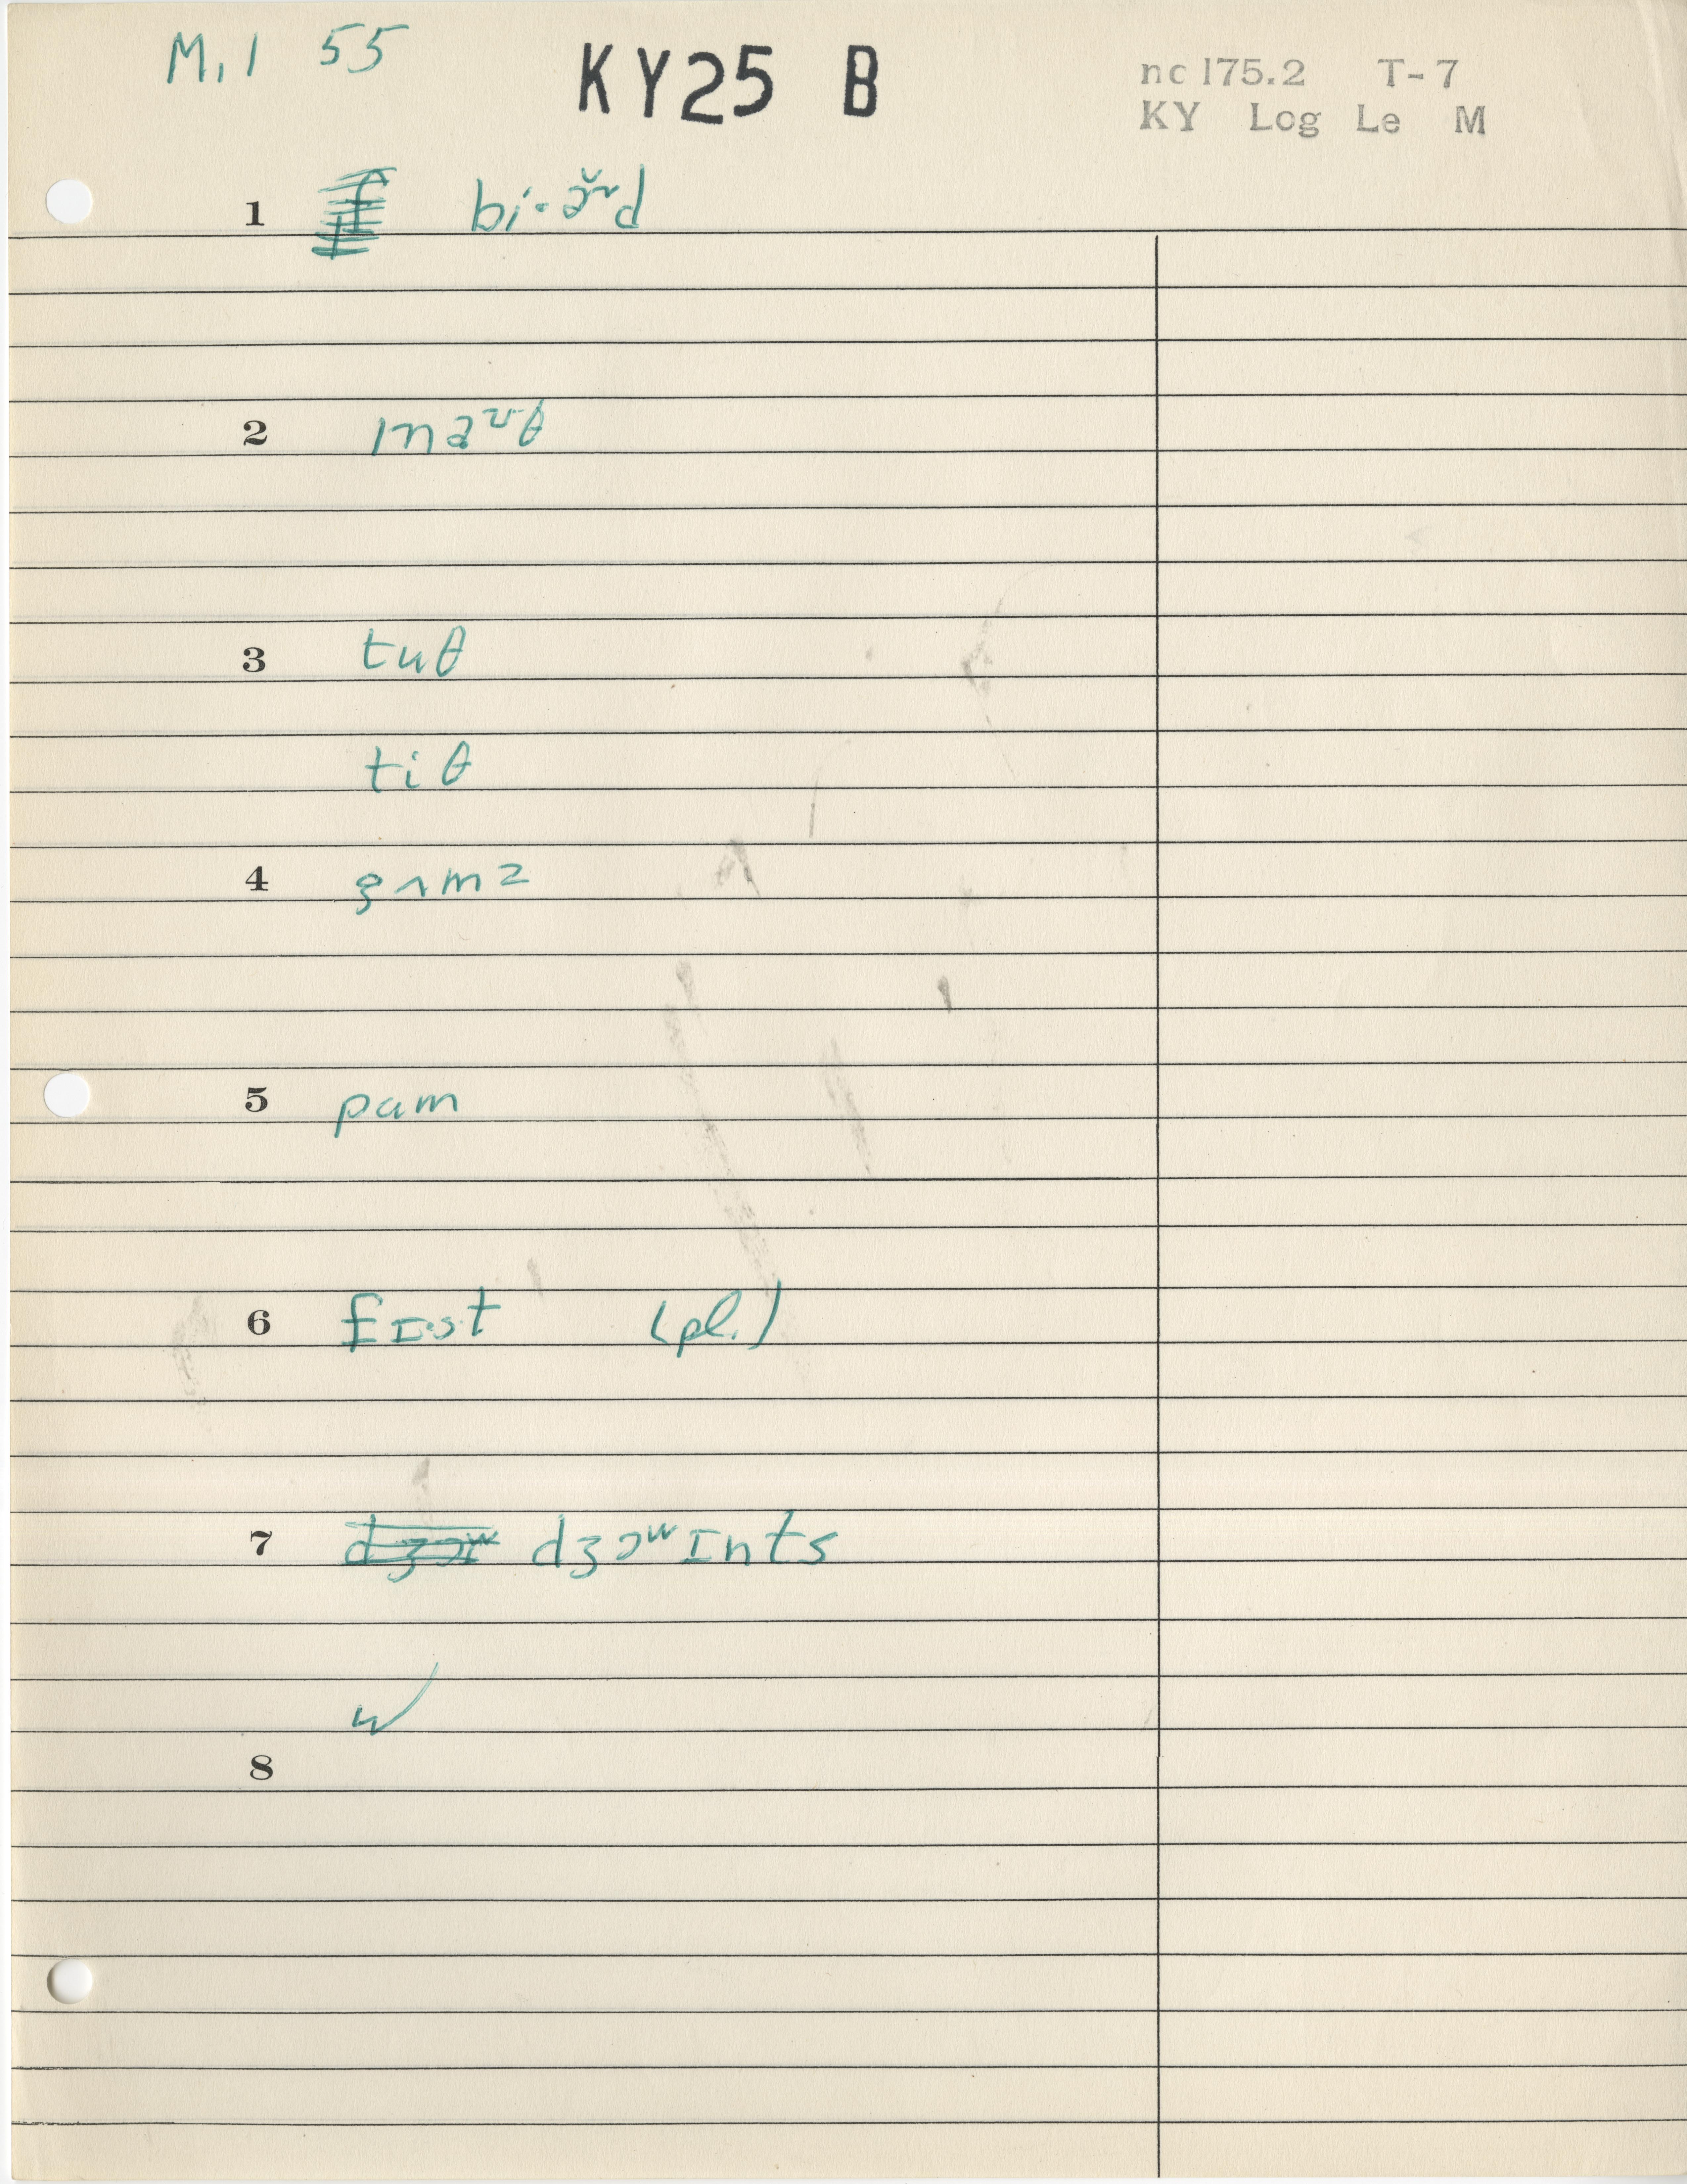 M, l 55 KY25 B nc 175.2 T-7
KY Log Le M
1 bi·ə̆ɚd
2 maʊθ
3 tuθ
tiθ
4 gʌmz
5 pam
6 fɪ·st (pl.)
7 dʒɔʷɪnts
8